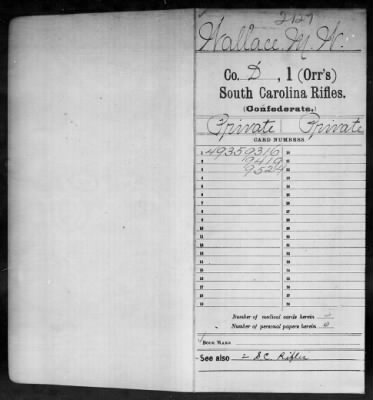 2127
Wallace, M. W.
Co. D, 1 (Orr's)
South Carolina Rifles.
(Confederate.)
Private Private
CARD NUMBERS.
1 49359316
2 9419
3 9524
Number of medical cards herein
Number of personal papers herein 0
BOOK MARK:
See also 2 S.C. Rifles